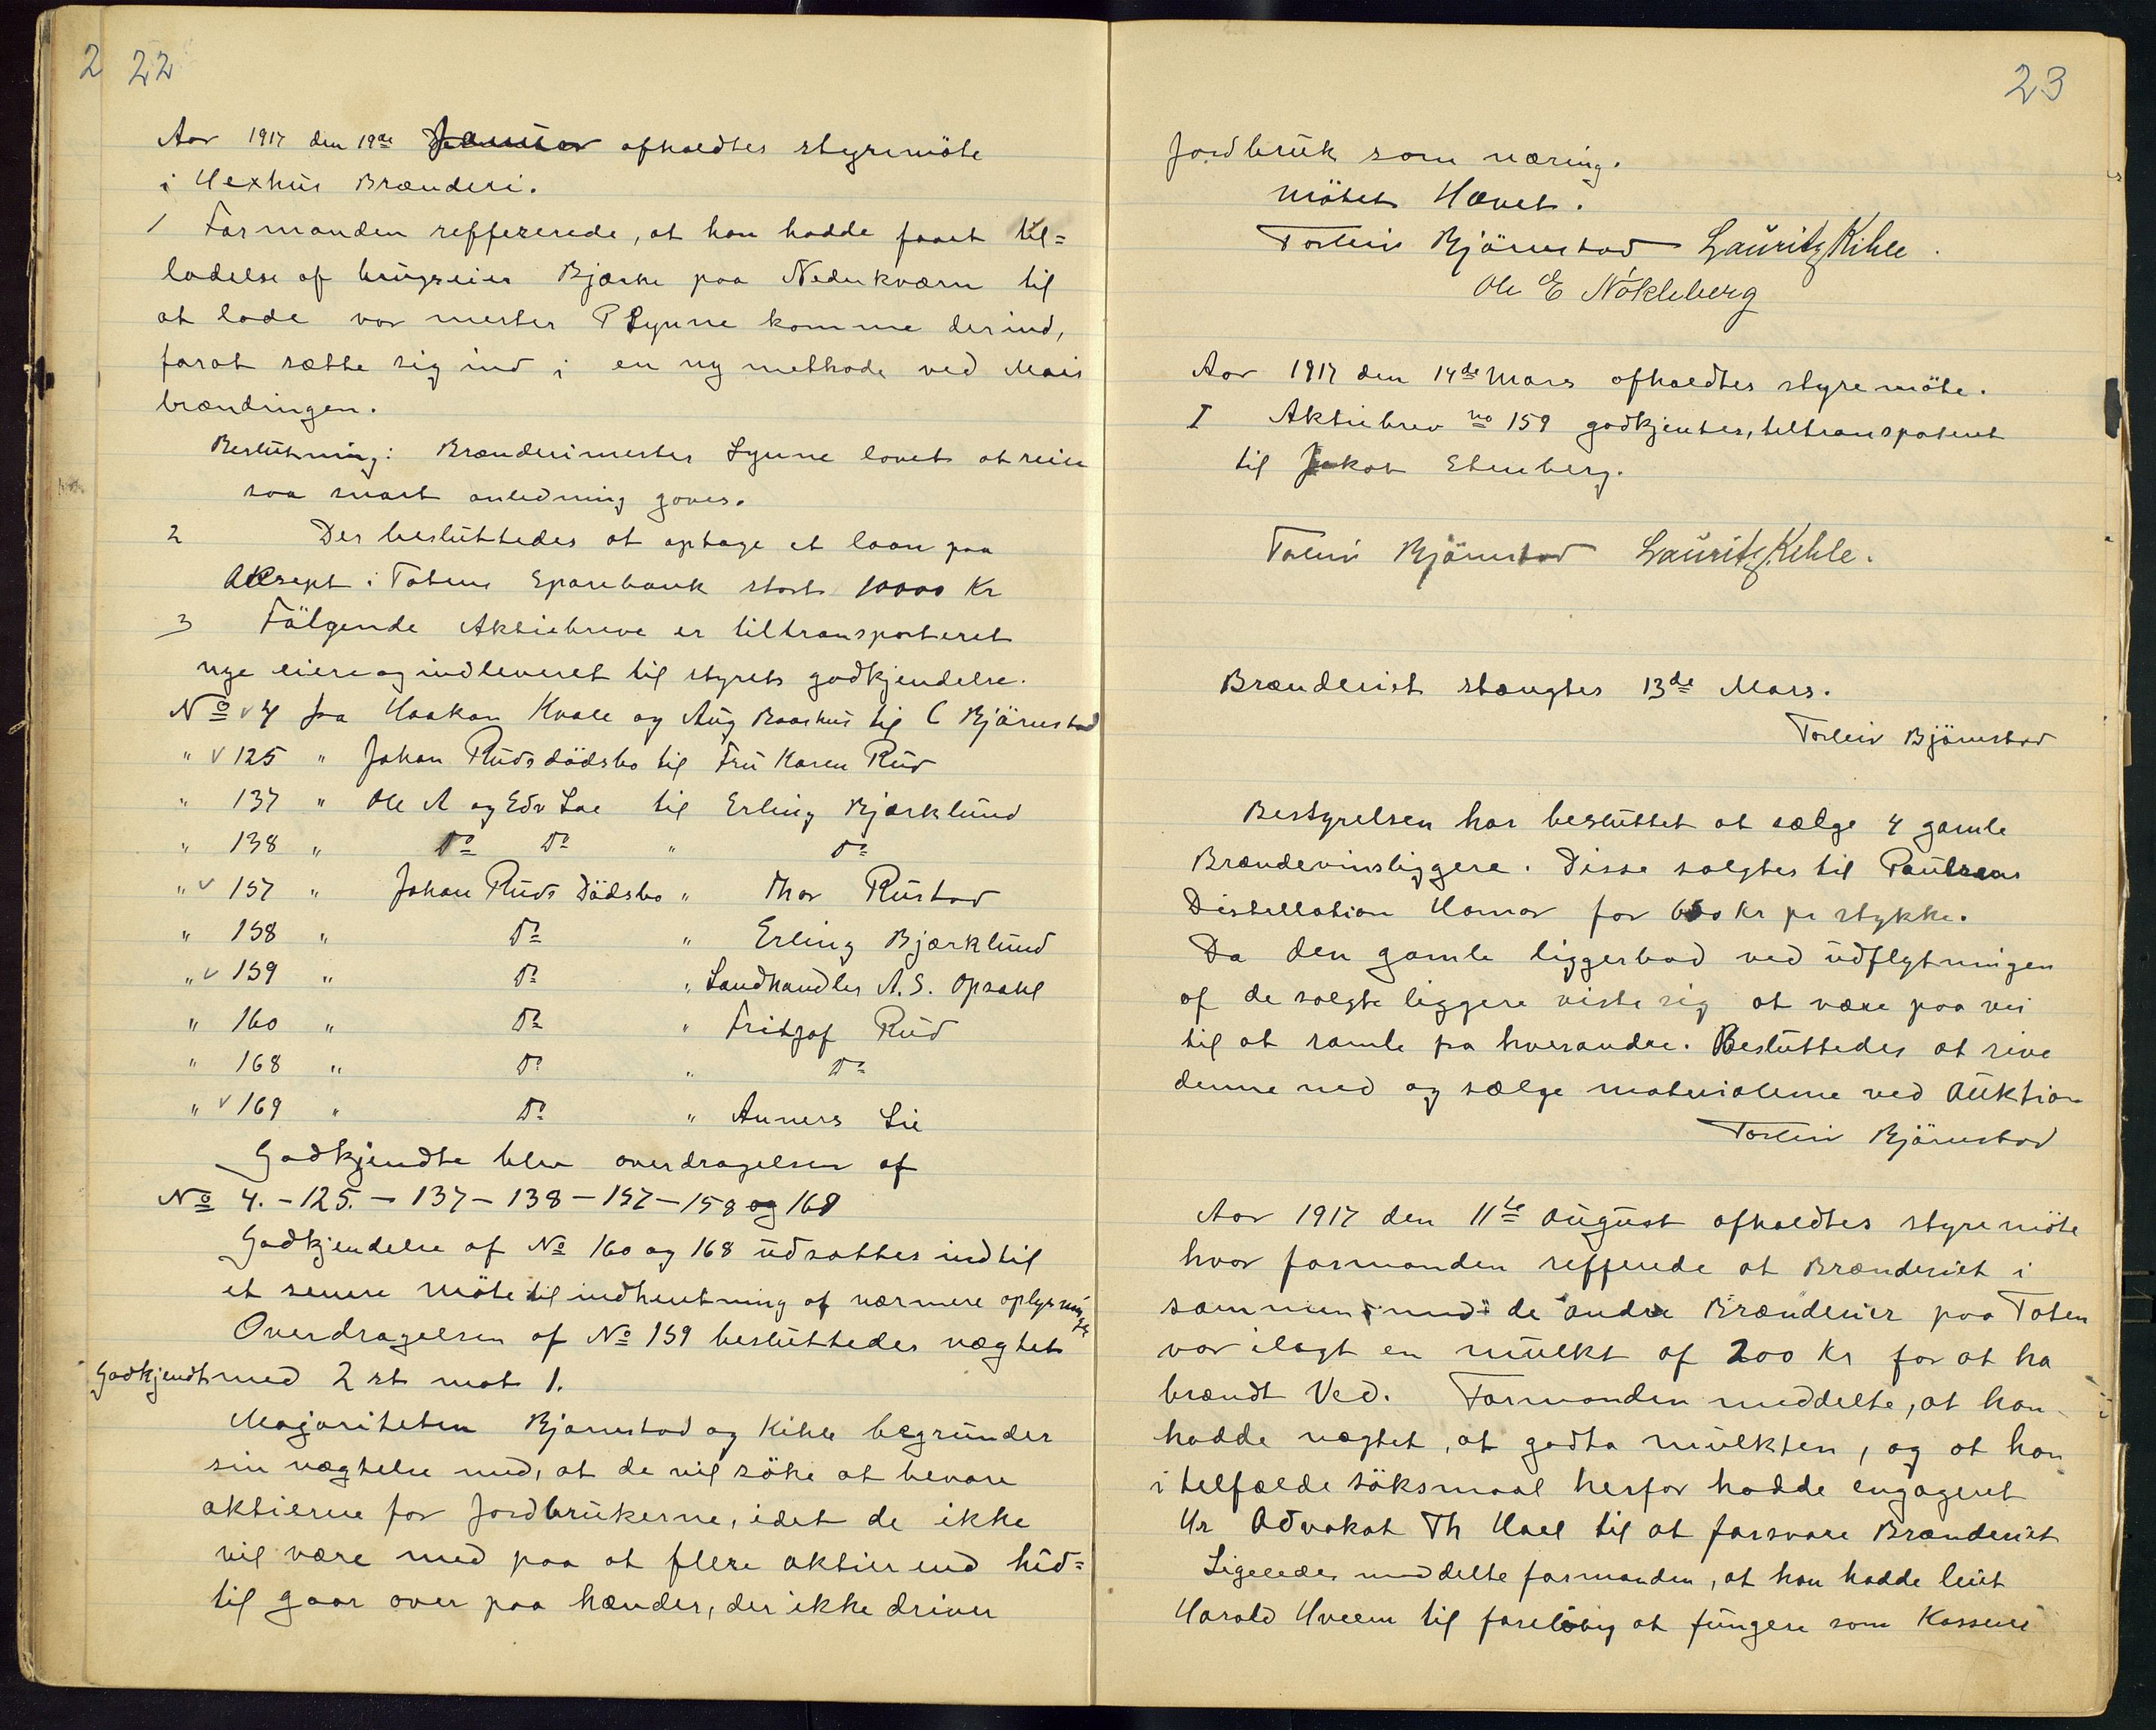 2 22
Aar 1917 den 19de Januar afholdtes styremöte
i Hexhus Brænderi.
1 Formanden reffererede, at han hadde faaet til=
ladelse af brugseier Bjærke paa Nederkværn til
at lade vor mester P Lynne komme derind,
forat sætte sig ind i en ny methode ved Mais
brændingen.
Beslutning: Brænderimester Lynne lovet at reise
saa snart anledning gaves.
2 Der besluttedes at optage et laan paa
Aksept i Totens Sparebank stort 10000 Kr
3 Fölgende Aktiebreve er tiltransporteret
nye eiere og indleveret til styrets godkjendelse.
No v 4 fra Haakon Hvale og Aug Baashus til C Björnstad
" v 125 " Johan Ruds dödsbo til Fru Karen Rud
" 137 " Ole A og Edv Lae til Erling Bjørklund
" 138 " Do Do " Do
" v 157 " Johan Ruds Dödsbo " Thor Rustad
" 158 " Do " Erling Bjørklund
" v 159 " Do " Landhandler A.S. Opsahl
" 160 " Do " Fritjof Rud
" 168 " Do " Do
" v 169 " Do " Anners Lie
Godkjendte blev overdragelsen af
No 4. - 125. - 137 - 138 - 157 - 158 og 169
Godkjendelse af No 160 og 168 udsattes indtil
et senere möte til indhentning af nærmere oplysninger
Overdragelsen af No 159 besluttedes nægtet
godkjendt med 2 st mot 1.
Majoriteten Bjørnstad og Kihle begrunder
sin nægtelse med, at de vil söke at bevare
aktierne for jordbrukerne, idet de ikke
vil være med paa at flere aktier end hid=
til gaar over paa hænder, der ikke driver
23
jordbruk som næring.
Mötet Hævet.
Torleiv Björnstad Lauritz Kihle.
Ole E Nökleberg
Aar 1917 den 14de Mars afholdtes styremöte.
I Aktiebrev no 159 godkjentes, tiltransporteret
til Jakob Stenberg.
Torleiv Björnstad Lauritz Kihle.
Brænderiet stængtes 13de Mars.
Torleiv Björnstad
Bestyrelsen har besluttet at sælge 4 gamle
Brændevinsliggere. Disse solgtes til Paulsens
Distellation Hamar for 650 Kr pr stykke.
Da den gamle liggerbod ved udflytningen
af de solgte liggere viste sig at være paa vei
til at ramle fra hverandre. Besluttedes at rive
denne ned og sælge materialerne ved Auktion
Torleiv Björnstad
Aar 1917 den 11te August afholdtes styremöte
hvor formanden refferede at Brænderiet i
sammen med de andre Brænderier paa Toten
var ilagt en mulkt af 200 Kr for at ha
brændt Ved. Formanden meddelte, at han
hadde nægtet, at godta mulkten, og at han
i telfælde söksmaal herfor hadde engageret
Hr Advokat Th Hael til at forsvare Brænderiet
Ligeledes meddelte formanden, at han hadde leiet
Harald Hveem til forelöbig at fungere som Kasserer